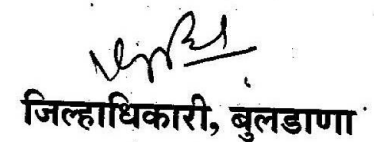 जिल्हाधिकारी, बुलडाणा